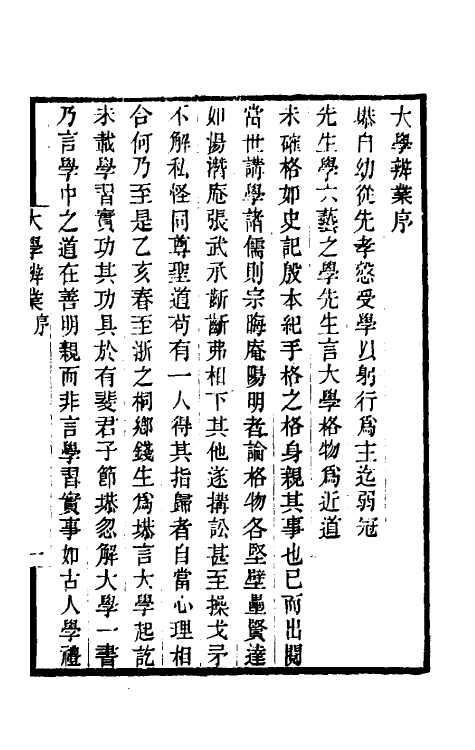 大學辨業序
塨自幼從先孝慤受學以躬行爲主迄弱冠
先生學六藝之學先生言大學格物爲近道
未確格如史記殷本紀手格之格身親其事也已而出閱
當世講學諸儒則宗晦庵陽明者論格物各堅壁壘賢達
如湯潛庵張武承齗齗弗相下其他遂搆訟甚至操戈矛
不解私怪同尊聖道苟有一人得其指歸者自當心理相
合何乃至是乙亥春至浙之桐鄉錢生爲塨言大學起訖
未載學習實功其功具於有斐君子節塨忽解大學一書
乃言學中之道在善明親而非言學習實事如古人學禮
大學辨業序
一